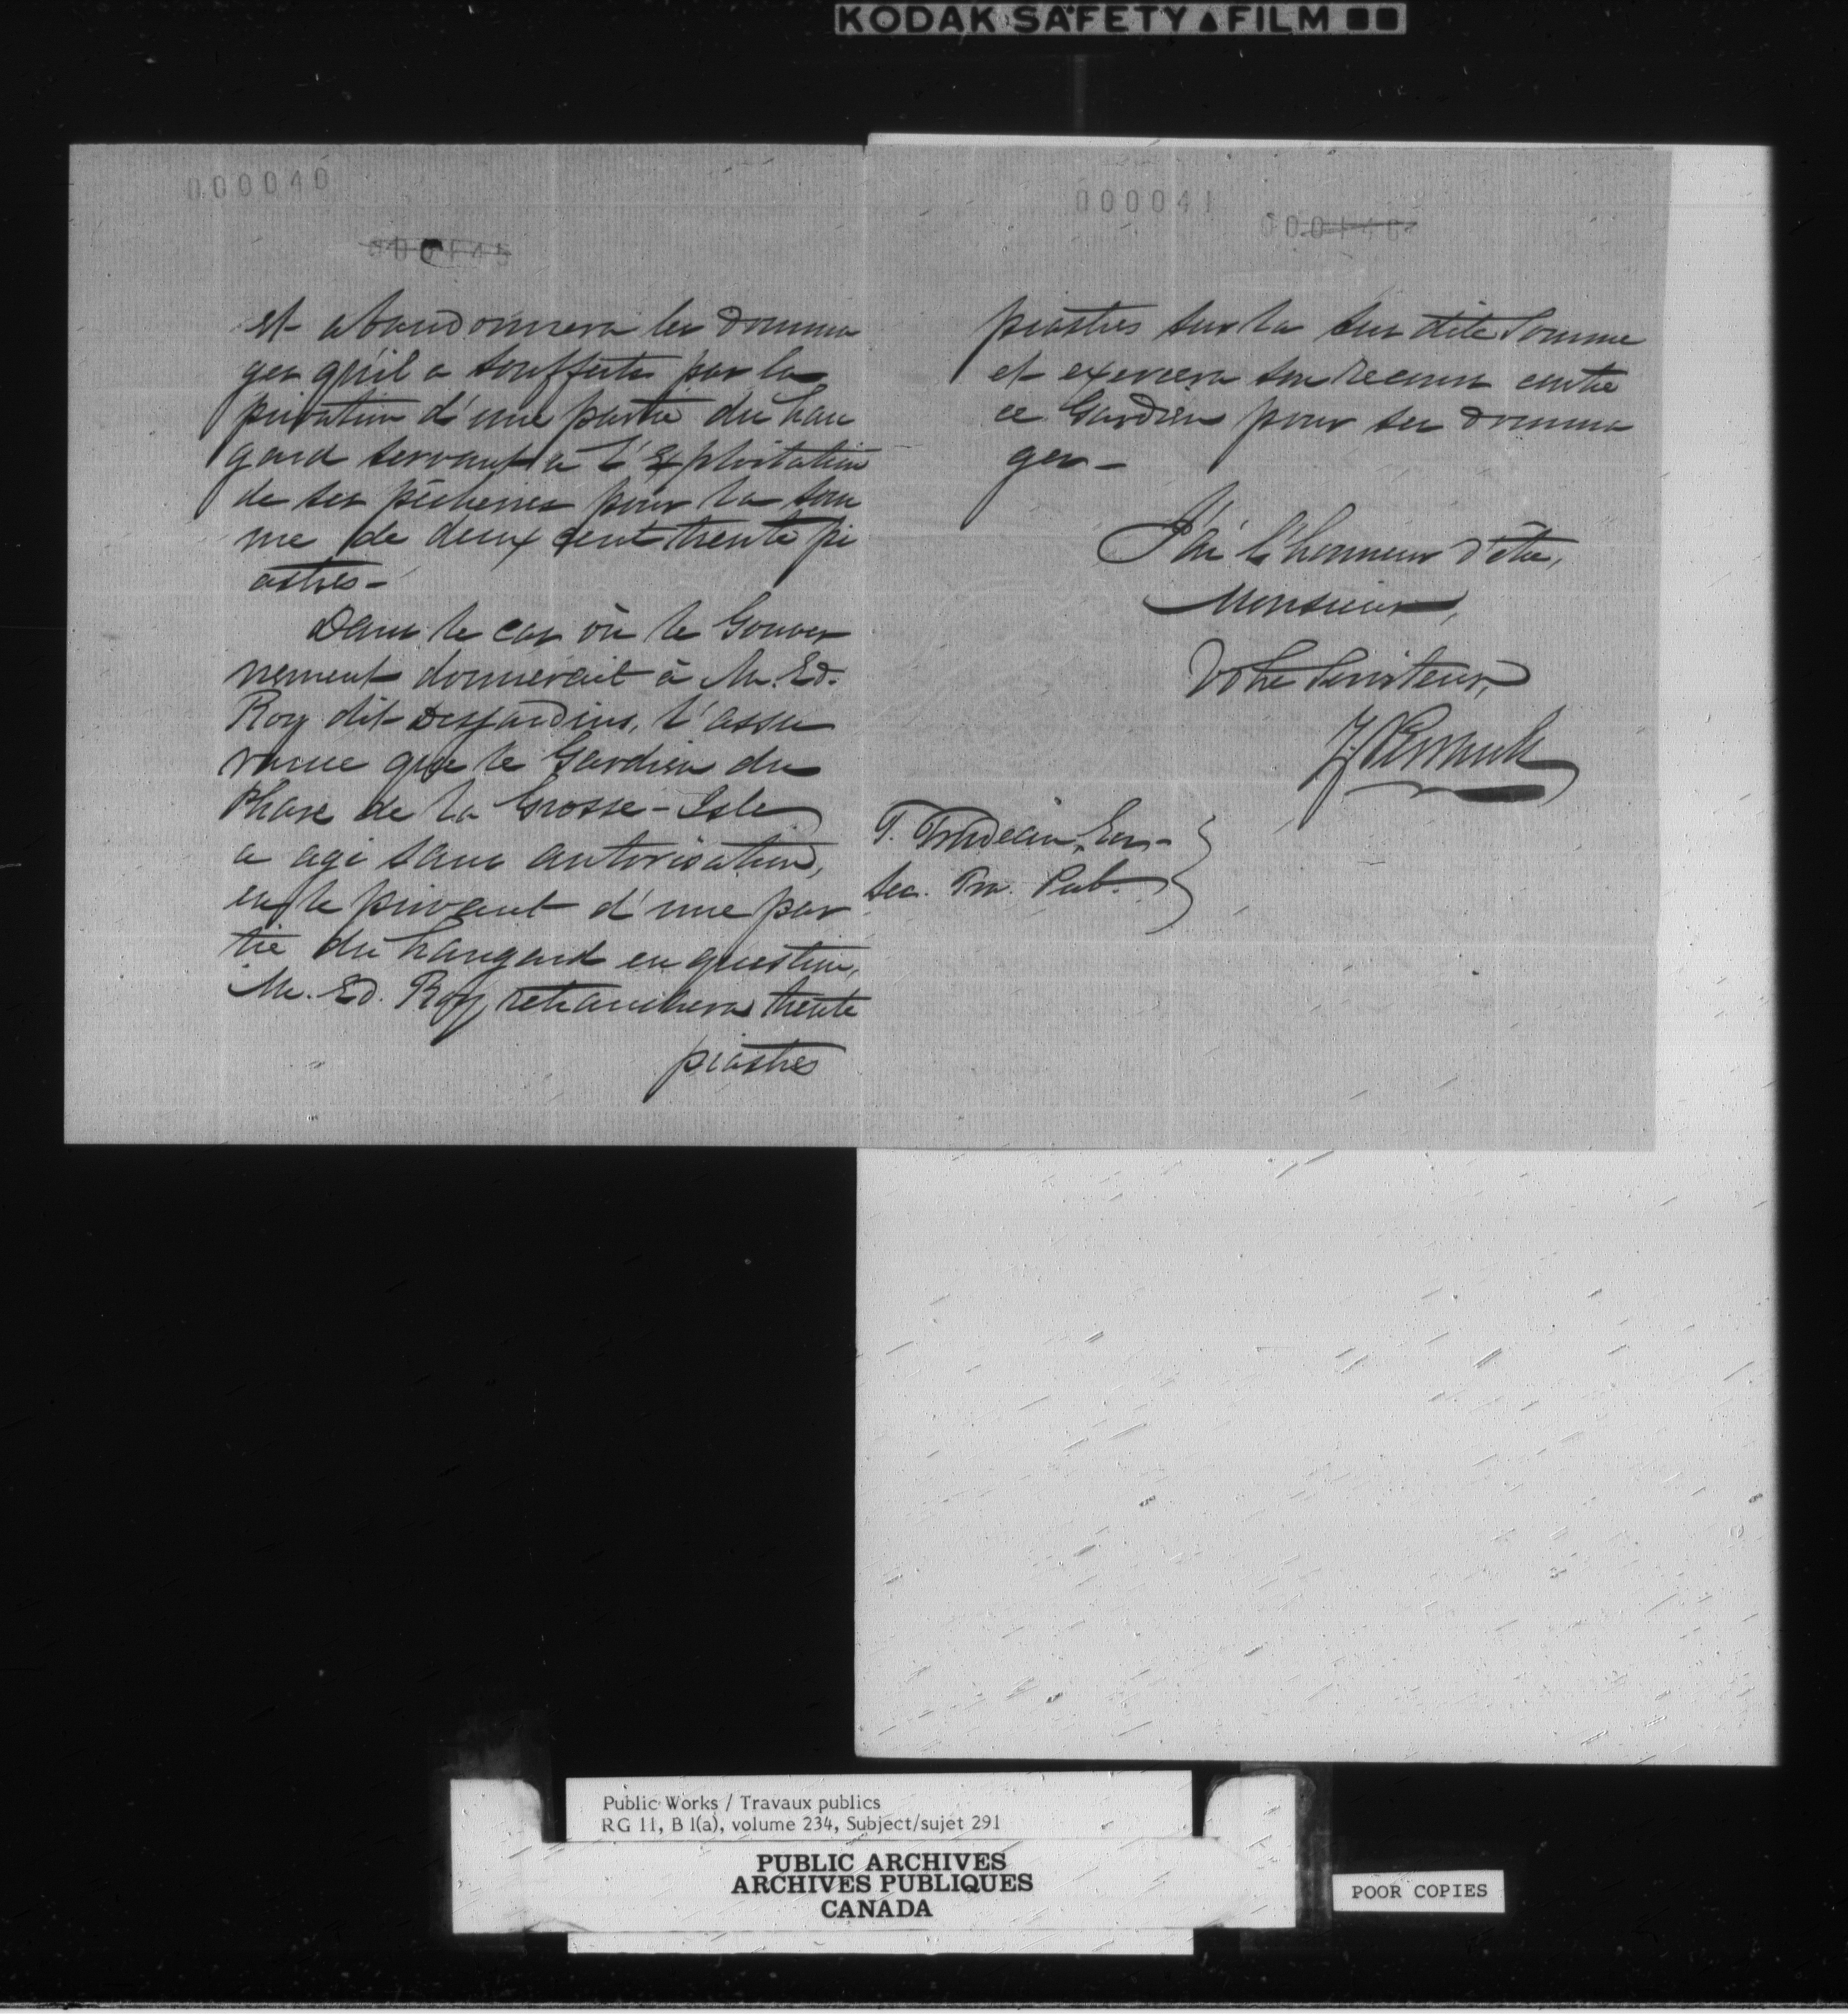 KODAK SAFETY FILM
000040
000145
et abandonnera les domma
ges qu'il a soufferts par la
privation d'une partie du han
gard servant à l'Exploitation
de ses pêcheries pour la som
me de deux cent trente pi
astres-
Dans le cas où le Gouver
nement donnerait à M. Ed.
Roy dit Desjardins, l'assu
rance que le Gardien du
Phare de la Grosse-Isle
a agi sans autorisation,
en le privant d'une par
tie du hangard en question,
M. Ed. Roy retranchera trente
piastres
000041
000146
piastres sur la sus dite Somme
et exercera son recours contre
ce Gardien pour ses domma
ges-
J'ai l'honneur d'être,
Monsieur,
Votre Serviteur,
T. Trudeau, Ecr.
Sec. Tra. Pub.
Public Works / Travaux publics
RG 11, B 1(a), volume 234, Subject/sujet 291
PUBLIC ARCHIVES
ARCHIVES PUBLIQUES
CANADA
POOR COPIES